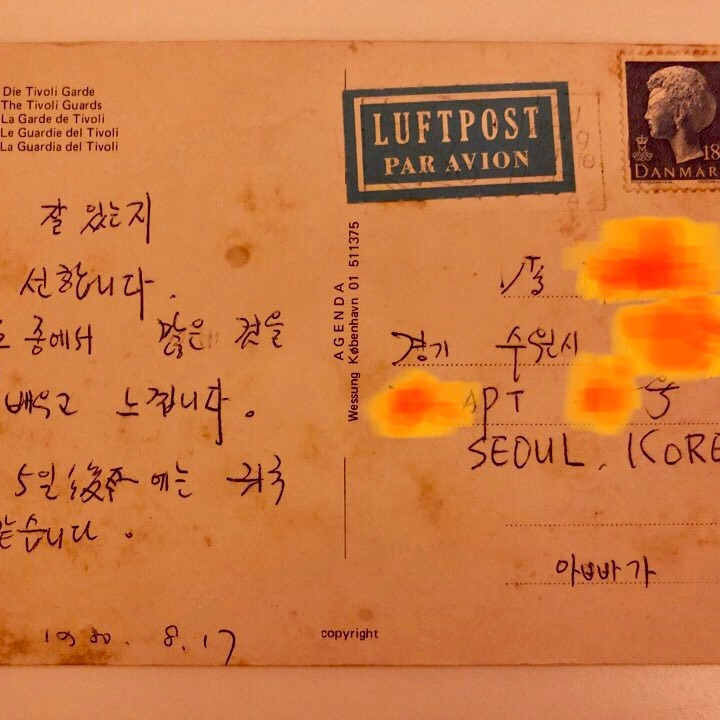 Die Tivoli Garde
The Tivoli Guards
La Garde de Tivoli
Le Guardie del Tivoli
La Guardia del Tivoli
LUFTPOST
PAR AVION
18
DANMAR
잘 있는지
선합니다.
중에서 많은 것을
배우고 느낍니다.
5일 後 에는 귀국
습니다.
1980. 8.17
AGENDA
Wessung København 01 511375
경기 수원시
APT
SEOUL, KORE
아빠가
copyright